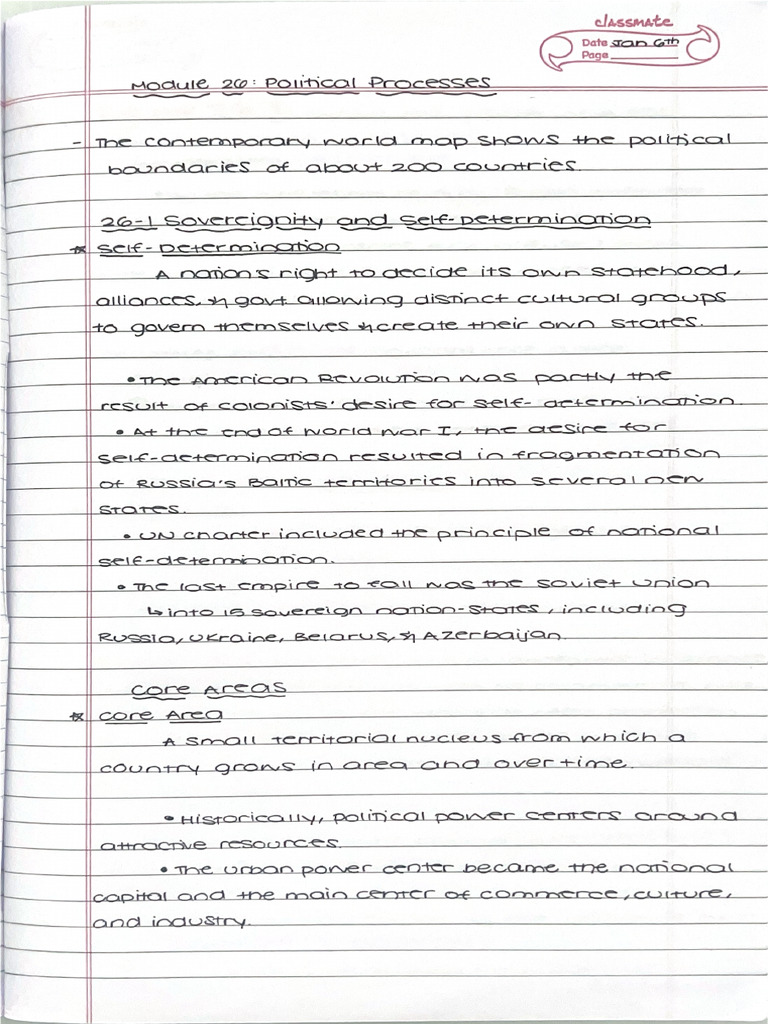 classmate
Date Jan 6th
Page
Module 26: Political Processes
- The contemporary world map shows the political
boundaries of about 200 countries.
26-1 Sovereignity and Self-Determination
* Self-Determination
A nation's right to decide its own statehood,
alliances, & govt allowing distinct cultural groups
to govern themselves & create their own states.
• The American Revolution was partly the
result of colonists' desire for self-determination.
• At the end of World War I, the desire for
self-determination resulted in fragmentation
of Russia's Baltic territories into several new
states.
• UN charter included the principle of national
self-determination.
• The last empire to fall was the Soviet Union
↳ into 15 sovereign nation-states, including
Russia, Ukraine, Belarus, & Azerbaijan.
Core Areas
* Core Area
A small territorial nucleus from which a
country grows in area and over time.
• Historically, political power centers around
attractive resources.
• The urban power center became the national
capital and the main center of commerce, culture,
and industry.